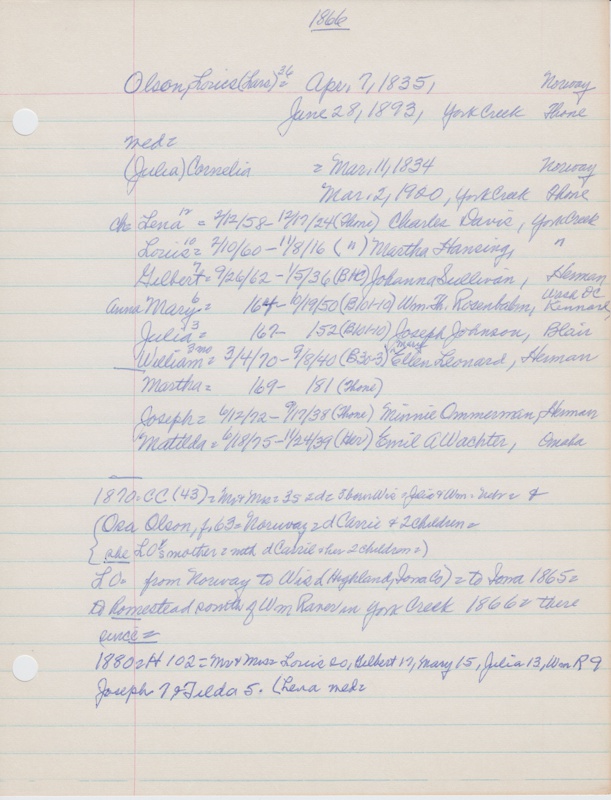 1866
Olson, Louis (Lars) 36 = Apr, 7, 1835, Norway
June 28, 1893, York Creek Fhone
med=
(Julia) Cornelia = Mar, 11, 1834 Norway
Mar. 2, 1900, York Creek Fhone
ch= Lena 12 = 2/12/58 - 12/17/24 (Fhone) Charles Davis, York Creek
Louis 10 = 2/10/60 - 11/8/16 (") Martha Hansing, "
Gilbert 7/4 = 9/26/62 - 1/5/36 (B10) Johanna Sullivan, Herman
Anna Mary 6 = 164 - 10/19/50 (B101-10) Wm. Th. Rosenbalm, Wash DC Kennard
Julia 3 = 167 - 152 (B101-10) Joseph Johnson, Blair
William 3-mo = 3/4/70 - 9/8/40 (B30-3) Mary Ellen Leonard, Herman
Martha = 169 - 181 (Fhone)
Joseph = 6/12/72 - 9/17/38 (Fhone) Minnie Ommerman, Herman
Matilda = 6/18/75 - 11/24/39 (Her) Emil A Wachter, Omaha
1870 = CC (43) = Mr & Mrs = 35 = 2d = 3 born Wis = Julia & Wm = Neb = &
(Osa Olson, f, 63 = Norway = d Carrie & 2 children =
she LO's mother = with d Carrie & her 2 children =)
LO = from Norway to Wis d (Highland, Iona Co) = to Iona 1865 =
to Homestead south of Wm Raver in York Creek 1866 = there
since =
1880 = H 102 = Mr & Mrs = Louis 20, Gilbert 17, Mary 15, Julia 13, Wm R 9
Joseph 7 & Tilda 5. (Lena med =